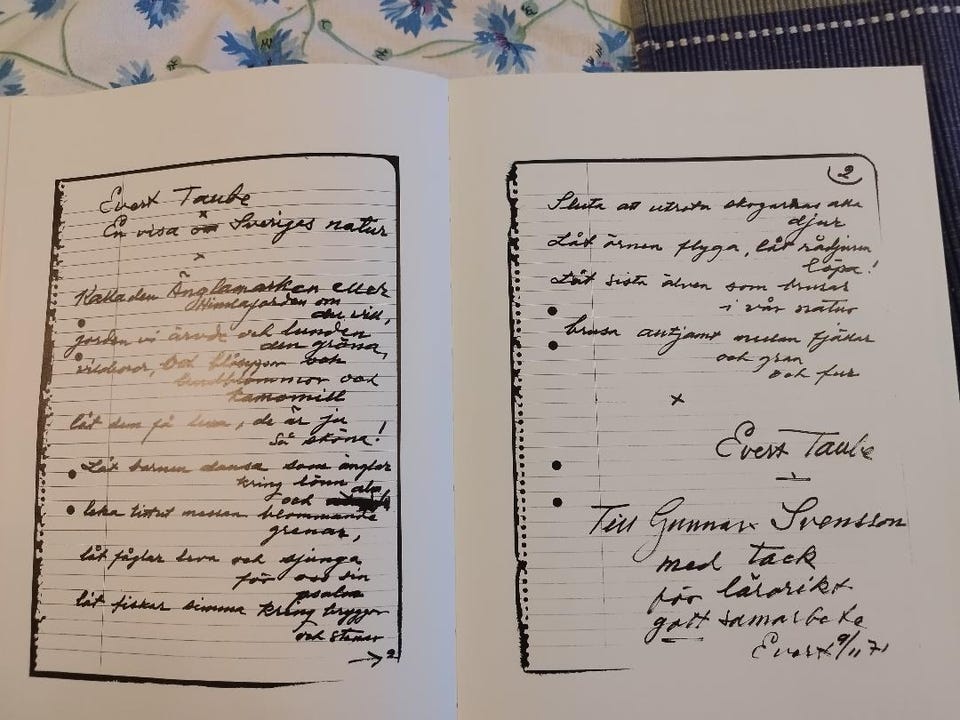 Evert Taube
En visa om Sveriges natur
x
Kalla den Änglamarken eller
Himlajorden om
du vill,
jorden vi ärvde och lunden
den gröna,
vildrosor, och blåsippor och
lindblommor och
kamomill
låt dem få leva, de är ju
så sköna!
Låt barnen dansa som änglar
kring lönn
och alm
leka tittut mellan blommande
grenar,
låt fåglar leva och sjunga
för oss sin
psalm
låt fiskar simma kring bryggor
och stenar
→ 2
2
Sluta att utrota skogarnas alla
djur
Låt örnen flyga, låt rådjuren
löpa!
Låt sista älven som brusar
i vår natur
brusa alltjämt mellan fjällar
och gran
och fur
x
Evert Taube
Till Gunnar Svensson
med tack
för lärorikt
gott samarbete
Evert 9/11 71